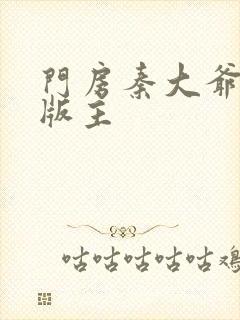 門房秦大爺
版主
咕咕咕咕咕鸡